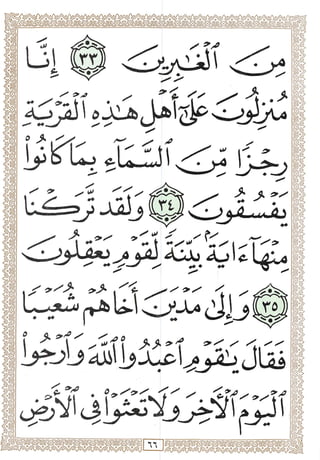 مِنَ ٱلْغَـٰبِرِينَ ٣٣ إِنَّا
مُنزِلُونَ عَلَىٰٓ أَهْلِ هَـٰذِهِ ٱلْقَرْيَةِ
رِجْزًا مِّنَ ٱلسَّمَآءِ بِمَا كَانُوا۟
يَفْسُقُونَ ٣٤ وَلَقَد تَّرَكْنَا
مِنْهَآ ءَايَةًۢ بَيِّنَةً لِّقَوْمٍ يَعْقِلُونَ
٣٥ وَإِلَىٰ مَدْيَنَ أَخَاهُمْ شُعَيْبًا
فَقَالَ يَـٰقَوْمِ ٱعْبُدُوا۟ ٱللَّهَ وَٱرْجُوا۟
ٱلْيَوْمَ ٱلْـَٔاخِرَ وَلَا تَعْثَوْا۟ فِى ٱلْأَرْضِ
٦٦